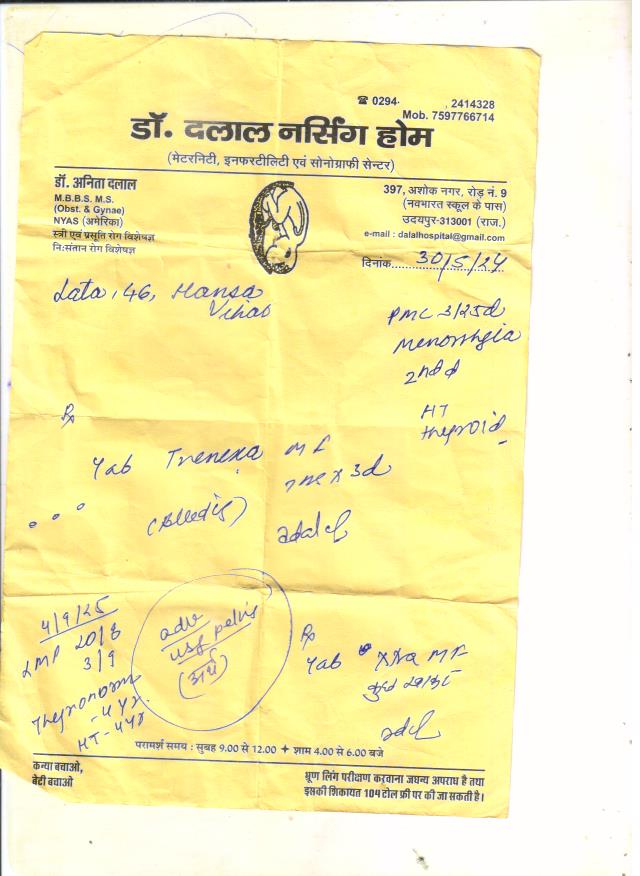 ☎ 0294- , 2414328
Mob. 7597766714
डॉ. दलाल नर्सिंग होम
(मेटरनिटी, इनफरटीलिटी एवं सोनोग्राफी सेन्टर)
डॉ. अनिता दलाल
M.B.B.S. M.S.
(Obst. & Gynae)
NYAS (अमेरिका)
स्त्री एवं प्रसूति रोग विशेषज्ञ
निःसंतान रोग विशेषज्ञ
397, अशोक नगर, रोड़ नं. 9
(नवभारत स्कूल के पास)
उदयपुर-313001 (राज.)
e-mail : dalalhospital@gmail.com
दिनांक 30/5/24
Lata, 46, Hansa
Vihar
PMC 3/25d
Menorrhgia
2nd d
HT
thyroid
Rx
Tab Trenexa MF
x 3d
(Bleedig)
4/9/25
LMP 20/8
3/9
Thyronorm
- 4 yr.
HT - 4 yr
adv
usg pelvis
Rx
Tab MF
परामर्श समय : सुबह 9.00 से 12.00 ✦ शाम 4.00 से 6.00 बजे
कन्या बचाओ,
बेटी बचाओ
भ्रूण लिंग परीक्षण करवाना जघन्य अपराध है तथा
इसकी शिकायत 104 टोल फ्री पर की जा सकती है।